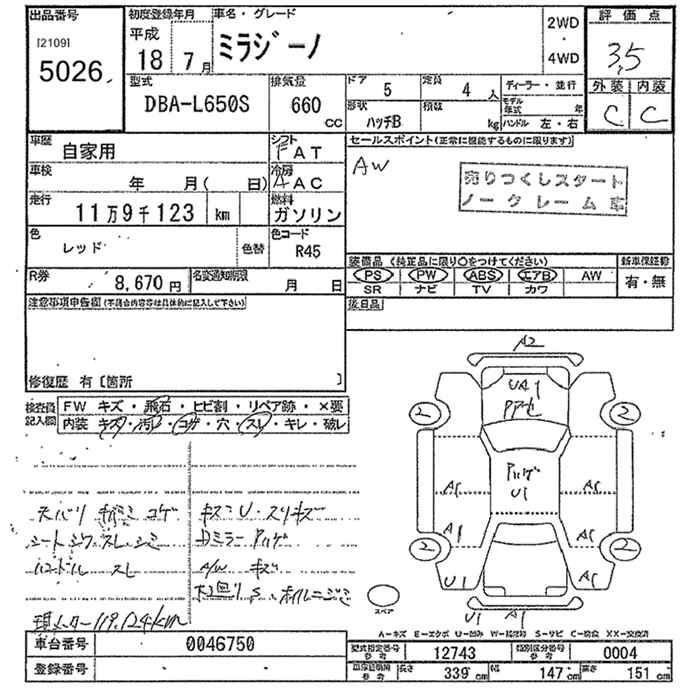 出品番号 初度登録年月 車名・グレード 2WD ・ 4WD 評価点
[2109]
5026 平成 18 7月 ミラジーノ 3.5
型式 DBA-L650S 排気量 660 CC ドア 5 定員 4人 ディーラー・並行 外装 内装
形状 ハッチB 積載 kg モデル年式 年 ハンドル 左・右 C C
車歴 自家用 シフト FAT セールスポイント(正常に機能するものに限ります)
車検 年 月(日) 冷房 AAC AW
売りつくしスタート
ノークレーム車
走行 11万9千123 km 燃料 ガソリン
色 レッド 色替 色コード R45
装備品 (純正品に限り○をつけてください) 新車保証書
PS PW ABS エアB AW 有・無
SR ナビ TV カワ
R券 8,670円 名変通知期限 月 日
後日品
注意事項申告欄(不具合内容等は具体的に記入して下さい)
修復歴 有〔箇所 〕
検査員記入欄 FW キズ・飛石・ヒビ割・リペア跡・×要
内装 キズ・汚れ・コゲ・穴・スレ・キレ・破レ
A2
UA1
2 2
Pハゲ
U1
A1 A1
A1 A1
2 2
U1 A1
U1 A1
天バリ コゲ キズミU・スリキズ
シートシワ・スレ・シミ Dミラー Pハゲ
ハンドル スレ A/W キズ
現メーター 119,124km
スペア
A-キズ E-エクボ U-凹み W-補修跡 S-サビ C-腐食 XX-交換済
車台番号 0046750 型式指定番号 参考 12743 類別区分番号 参考 0004
登録番号 参考 長さ 339cm 幅 147cm 高さ 151cm